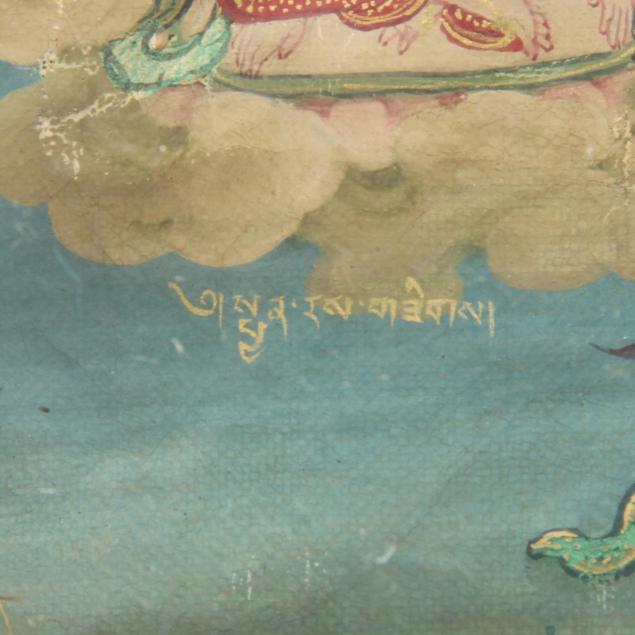 ༄།སྤྱན་རས་གཟིགས།